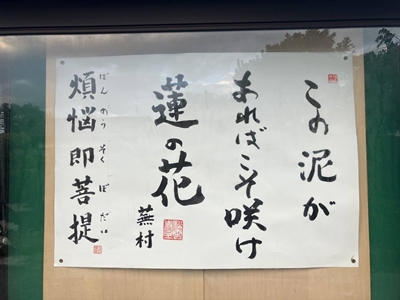 この泥が
あればこそ咲け
蓮の花
蕪村
煩悩即菩提
ぼんのうそくぼだい